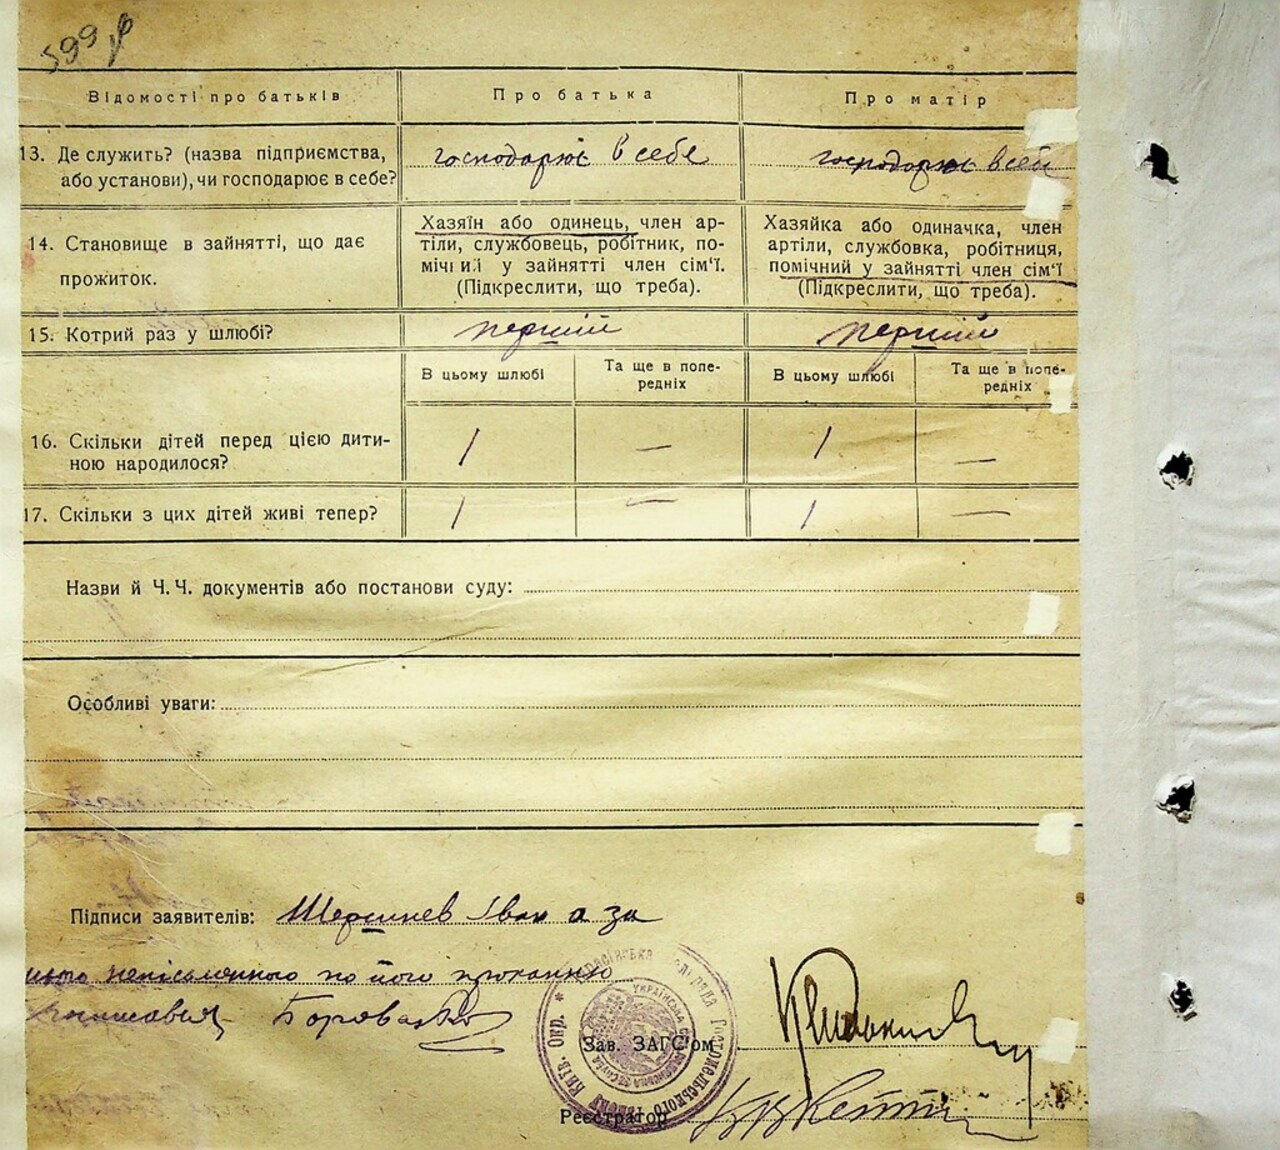 599
Відомості про батьків
Про батька
Про матір
13. Де служить? (назва підприємства,
або установи), чи господарює в себе?
господарює в себе
господарює в себе
14. Становище в зайнятті, що дає
прожиток.
Хазяїн або одинець, член ар-
тіли, службовець, робітник, по-
мічний у зайнятті член сім'ї.
(Підкреслити, що треба).
Хазяйка або одиначка, член
артіли, службовка, робітниця,
помічний у зайнятті член сім'ї
(Підкреслити, що треба).
15. Котрий раз у шлюбі?
перший
перший
В цьому шлюбі
Та ще в попе-
редніх
В цьому шлюбі
Та ще в попе-
редніх
16. Скільки дітей перед цією дити-
ною народилося?
1
—
1
—
17. Скільки з цих дітей живі тепер?
1
—
1
—
Назви й Ч. Ч. документів або постанови суду:
Особливі уваги:
Підписи заявителів: Іван а за
неписьменного по його проханню
Зав. ЗАГС'ом
Реєстратор